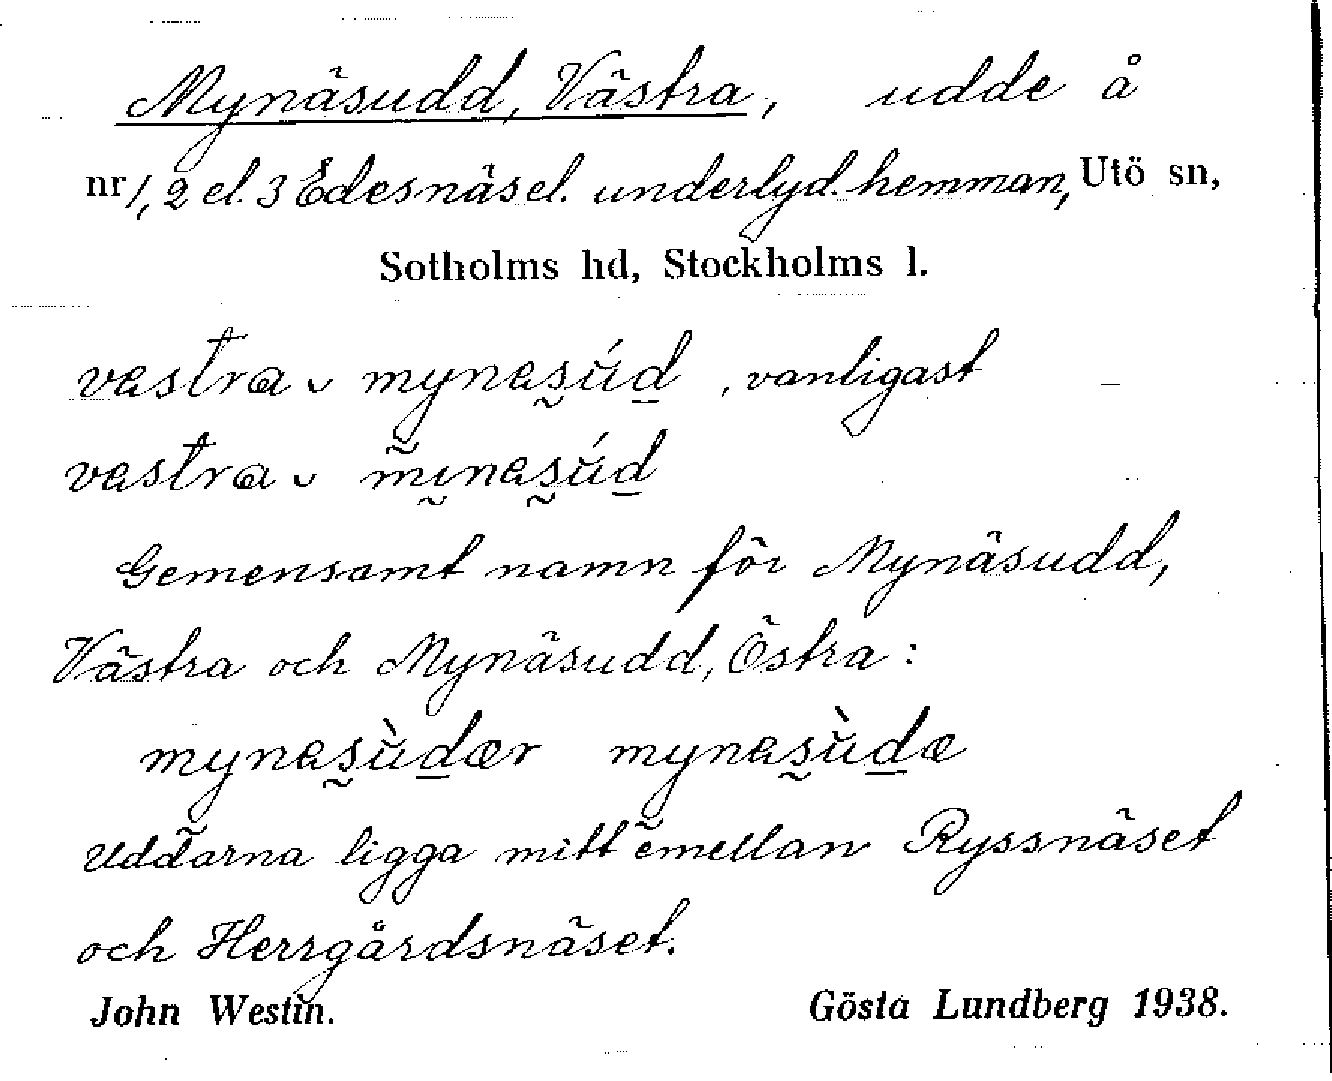 Mynäsudd, Västra, udde å
nr 1, 2 el. 3 Edesnäs el. underlyd. hemman, Utö sn,
Sotholms hd, Stockholms l.
vastra ᴗ mynasúd, vanligast
vastra ᴗ mınasúd
Gemensamt namn för Mynäsudd,
Västra och Mynäsudd, Östra:
mynasùdær mynasùdæ
Uddarna ligga mitt emellan Ryssnäset
och Herrgårdsnäset.
John Westin. Gösta Lundberg 1938.